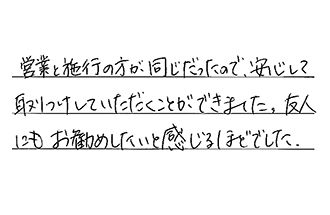 営業と施行の方が同じだったので、安心して
取りつけしていただくことができました。友人
にもお勧めしたいと感じるほどでした。